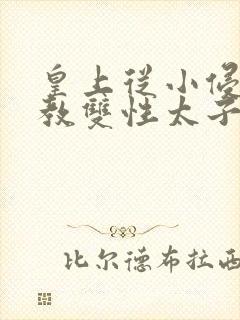 皇上从小侵
教雙性太子
比尔德布拉西